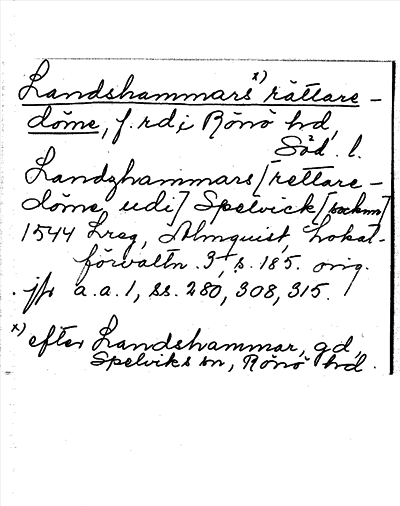 Landshammars x) rättare-
döme, f.rd i Rönö hd,
Söd. l.
Landzhammars [rettare-
döme, udi] Spelvick [socknn]
1544 Lreg, Almquist, Lokal-
förvaltn. 3+, s. 185. orig.
. jfr a.a. 1, ss. 280, 308, 315.
x) efter Landshammar, gd,
Spelviks sn, Rönö hd.